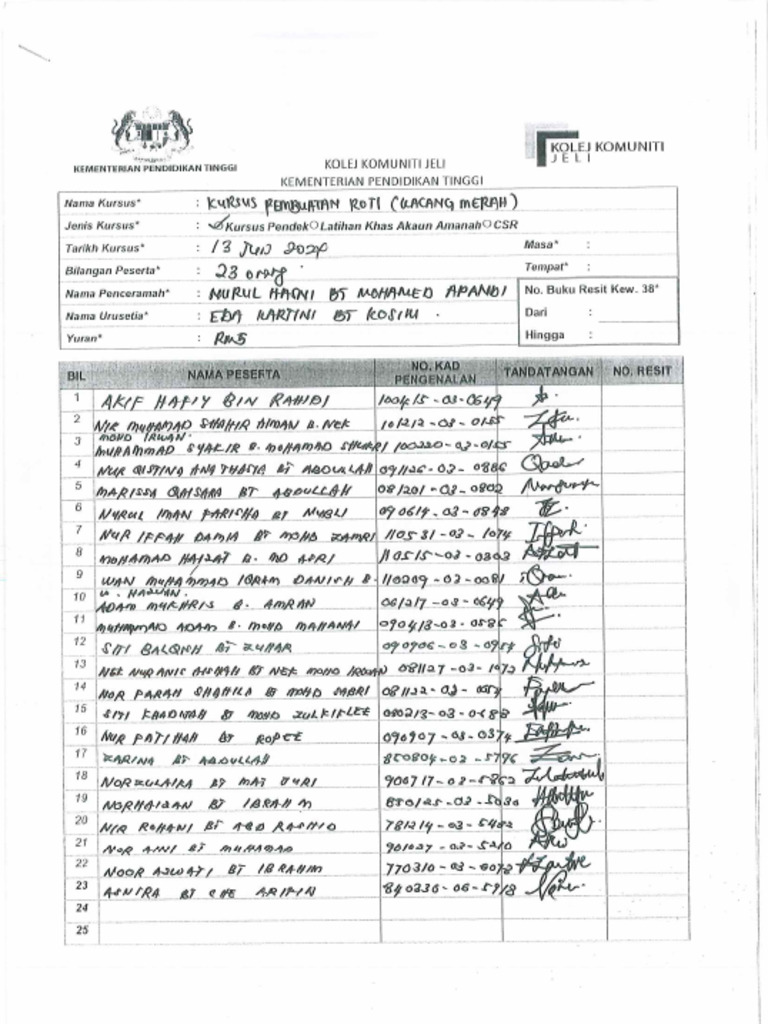 KEMENTERIAN PENDIDIKAN TINGGI
KOLEJ KOMUNITI
JELI
KOLEJ KOMUNITI JELI
KEMENTERIAN PENDIDIKAN TINGGI
Nama Kursus* : KURSUS PEMBUATAN ROTI (KACANG MERAH)
Jenis Kursus* : Kursus Pendek Latihan Khas Akaun Amanah CSR
Tarikh Kursus* : 13 Jun 2024 Masa* :
Bilangan Peserta* : 23 orang Tempat* :
Nama Penceramah* : NURUL HASNI BT MOHAMED APANDI No. Buku Resit Kew. 38*
Nama Urusetia* : EDA KARTINI BT KOSIM. Dari :
Yuran* : RM5 Hingga :
BIL NAMA PESERTA NO. KAD PENGENALAN TANDATANGAN NO. RESIT
1 AKIF HAFIY BIN RAHIDI 100415-03-0649
2 NIK MUHAMAD SHAHIR AIMAN B. NEK 101212-03-0155
MOHD IRWAN.
3 MUHAMMAD SYAKIR B. MOHAMAD SHUKRI 100220-03-0155
4 NUR QISTINA ANATHASYA BT ABDULLAH 091126-03-0886
5 MARISSA QAISARA BT ABDULLAH 081201-03-0802
6 NURUL IMAN FARISHA BT NUBLI 090614-03-0848
7 NUR IFFAH DAMIA BT MOHD ZAMRI 110531-03-1074
8 MOHAMAD HAIZAT B. MD ASRI 110515-03-0303
9 WAN MUHAMMAD IQRAM DANISH B. 110209-03-0081
W. HAZWAN.
10 ADAM MUKHRIS B. AMRAN 061217-03-0649
11 MUHAMMAD ADAM B. MOHD MAHANAI 090413-03-0585
12 SITI BALQISH BT ZUHAR 090906-03-0954
13 NEK NUR ANIS AISHAH BT NEK MOHD IRDUAN 081127-03-1072
14 NOR FARAH SHAHILA BT MOHD SABRI 081122-03-
15 SITI KHADIJAH BT MOHD ZULKIFLEE 080213-03-0688
16 NUR FATIHAH BT ROPEE 090907-03-0374
17 ZARINA BT ABDULLAH 850804-03-5796
18 NORZULAIKA BT MAT JURI 900717-03-5862
19 NORHAIZAN BT IBRAHIM 850125-03-5030
20 NIK ROHANI BT ABD RASHID 781214-03-5482
21 NOR AINI BT MUHAMAD 901027-03-5210
22 NOOR AZWATI BT IBRAHIM 770310-03-
23 ASNIRA BT CHE ARIPIN 840330-06-5918
24
25